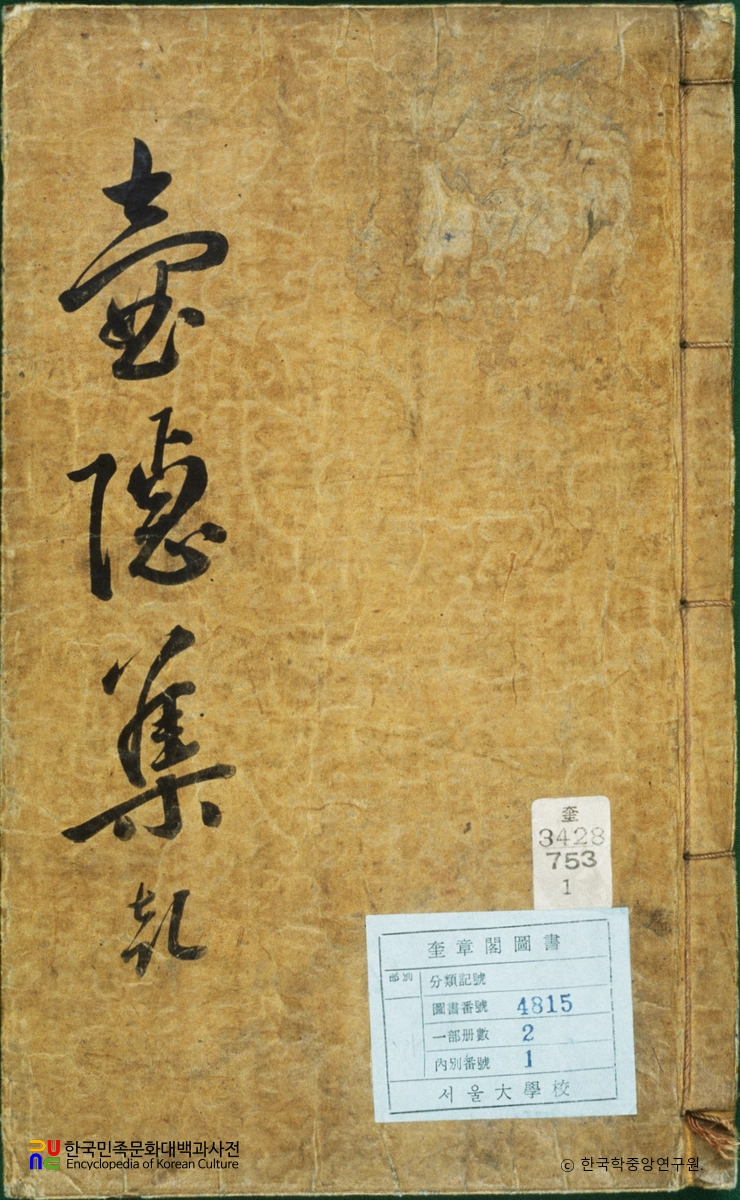 壺隱集 乾
奎
3428
753
1
奎章閣圖書
部別
分類記號
圖書番號 4815
一部册數 2
內別番號 1
서울大學校
한국민족문화대백과사전
Encyclopedia of Korean Culture
© 한국학중앙연구원